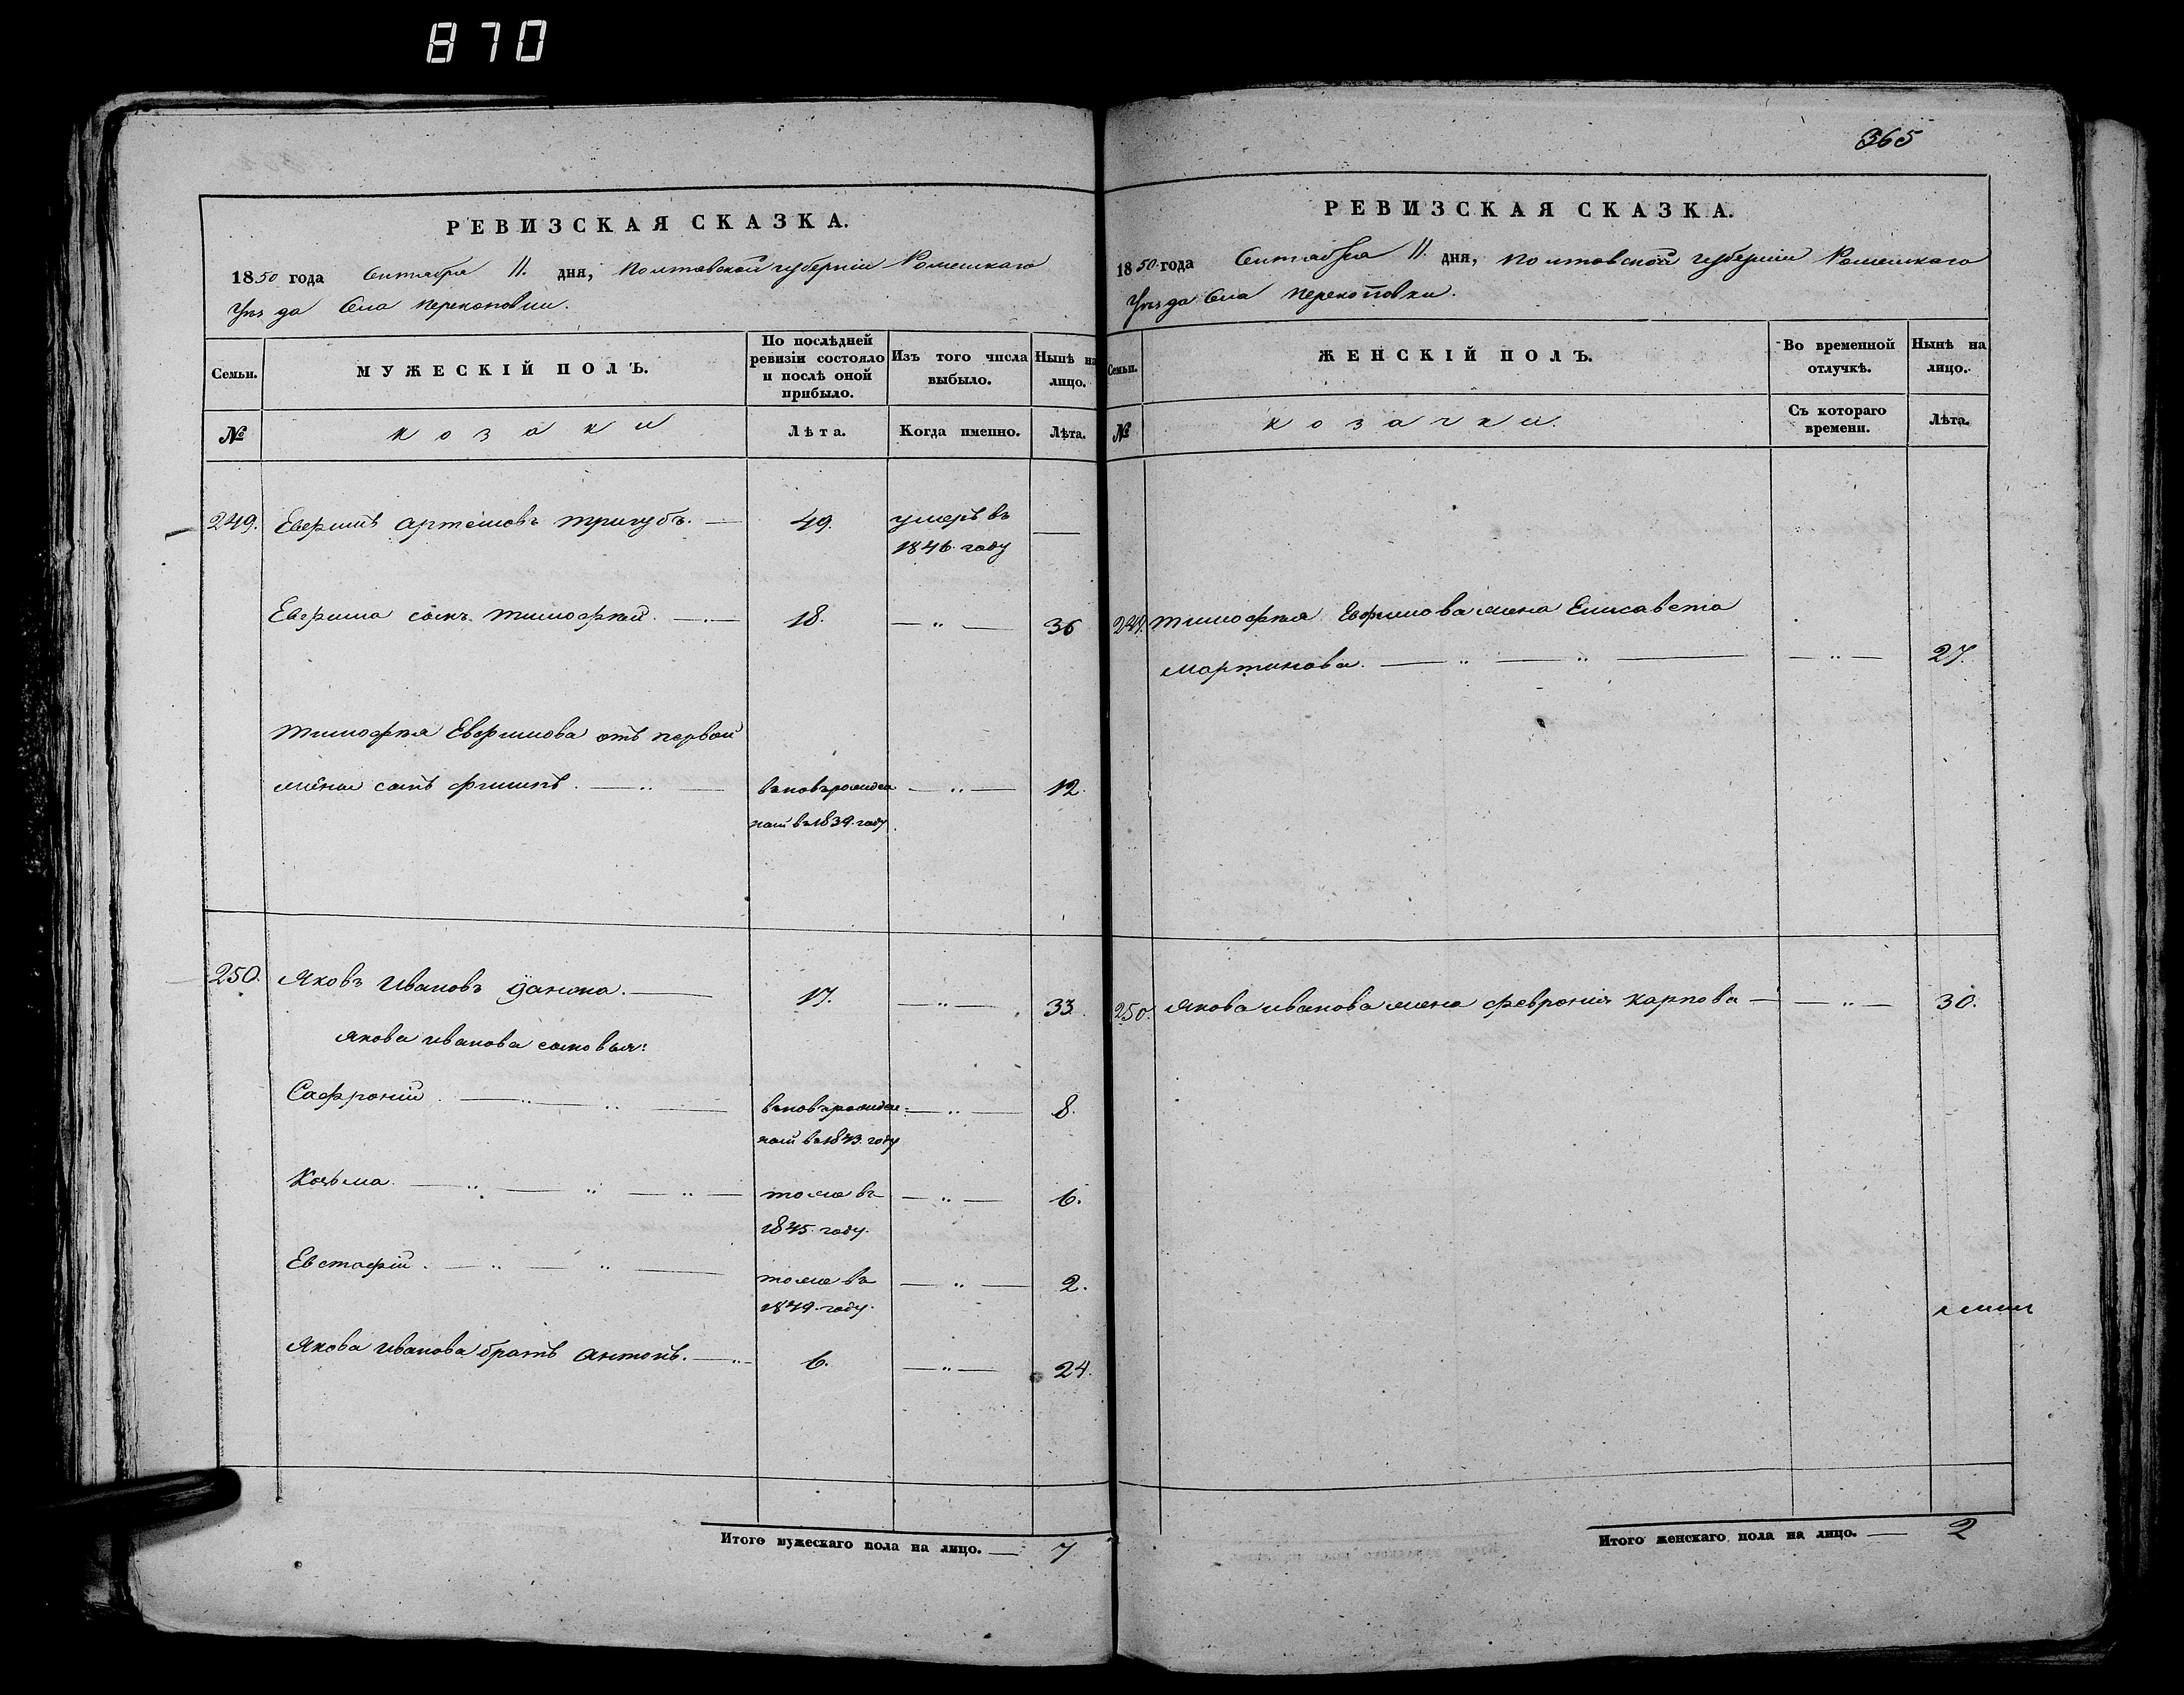 870
365
РЕВИЗСКАЯ СКАЗКА.
1850 года Сентября 11. дня, Полтавской губернiи Роменскаго
Уѣзда Села Перекоповки.
Семьи.
МУЖЕСКIЙ ПОЛЪ.
По послѣдней ревизiи состояло и послѣ оной прибыло.
Изъ того числа выбыло.
Нынѣ на лицо.
№
козаки
Лѣта.
Когда именно.
Лѣта.
249. Евфимъ Артемовъ Тригубъ. — 49. умеръ въ —
1846 году
Евфима сынъ Тимофей. — 18. — " — 36
Тимофея Евфимова отъ первой
жены сынъ Филипъ. — " — вновь рожден — " — 12.
ный въ 1839 году
250. Яковъ Ивановъ — 17. — " — 33.
Якова Иванова сыновья:
Сафронiй. — " — " — вновь рожден — " — 8.
ный въ 1843 году
Козьма. — " — " — " — тоже въ — " — 6.
1845 году.
Евстафiй. — " — " — тоже въ — " — 2.
1849 году.
Якова Иванова братъ Антонъ. — " — 6. — " — 24.
Итого мужескаго пола на лицо. — 7
РЕВИЗСКАЯ СКАЗКА.
1850 года Сентября 11. дня, Полтавской губернiи Роменскаго
Уѣзда Села Перекоповки.
Семьи.
ЖЕНСКIЙ ПОЛЪ.
Во временной отлучкѣ.
Нынѣ на лицо.
№
козачки.
Съ котораго времени.
Лѣта.
249. Тимофея Евфимова жена Елисавета
Мартинова. — " — " — — " — 27.
250. Якова Иванова жена Феврония Карпова — — " — 30.
Итого женскаго пола на лицо. — 2